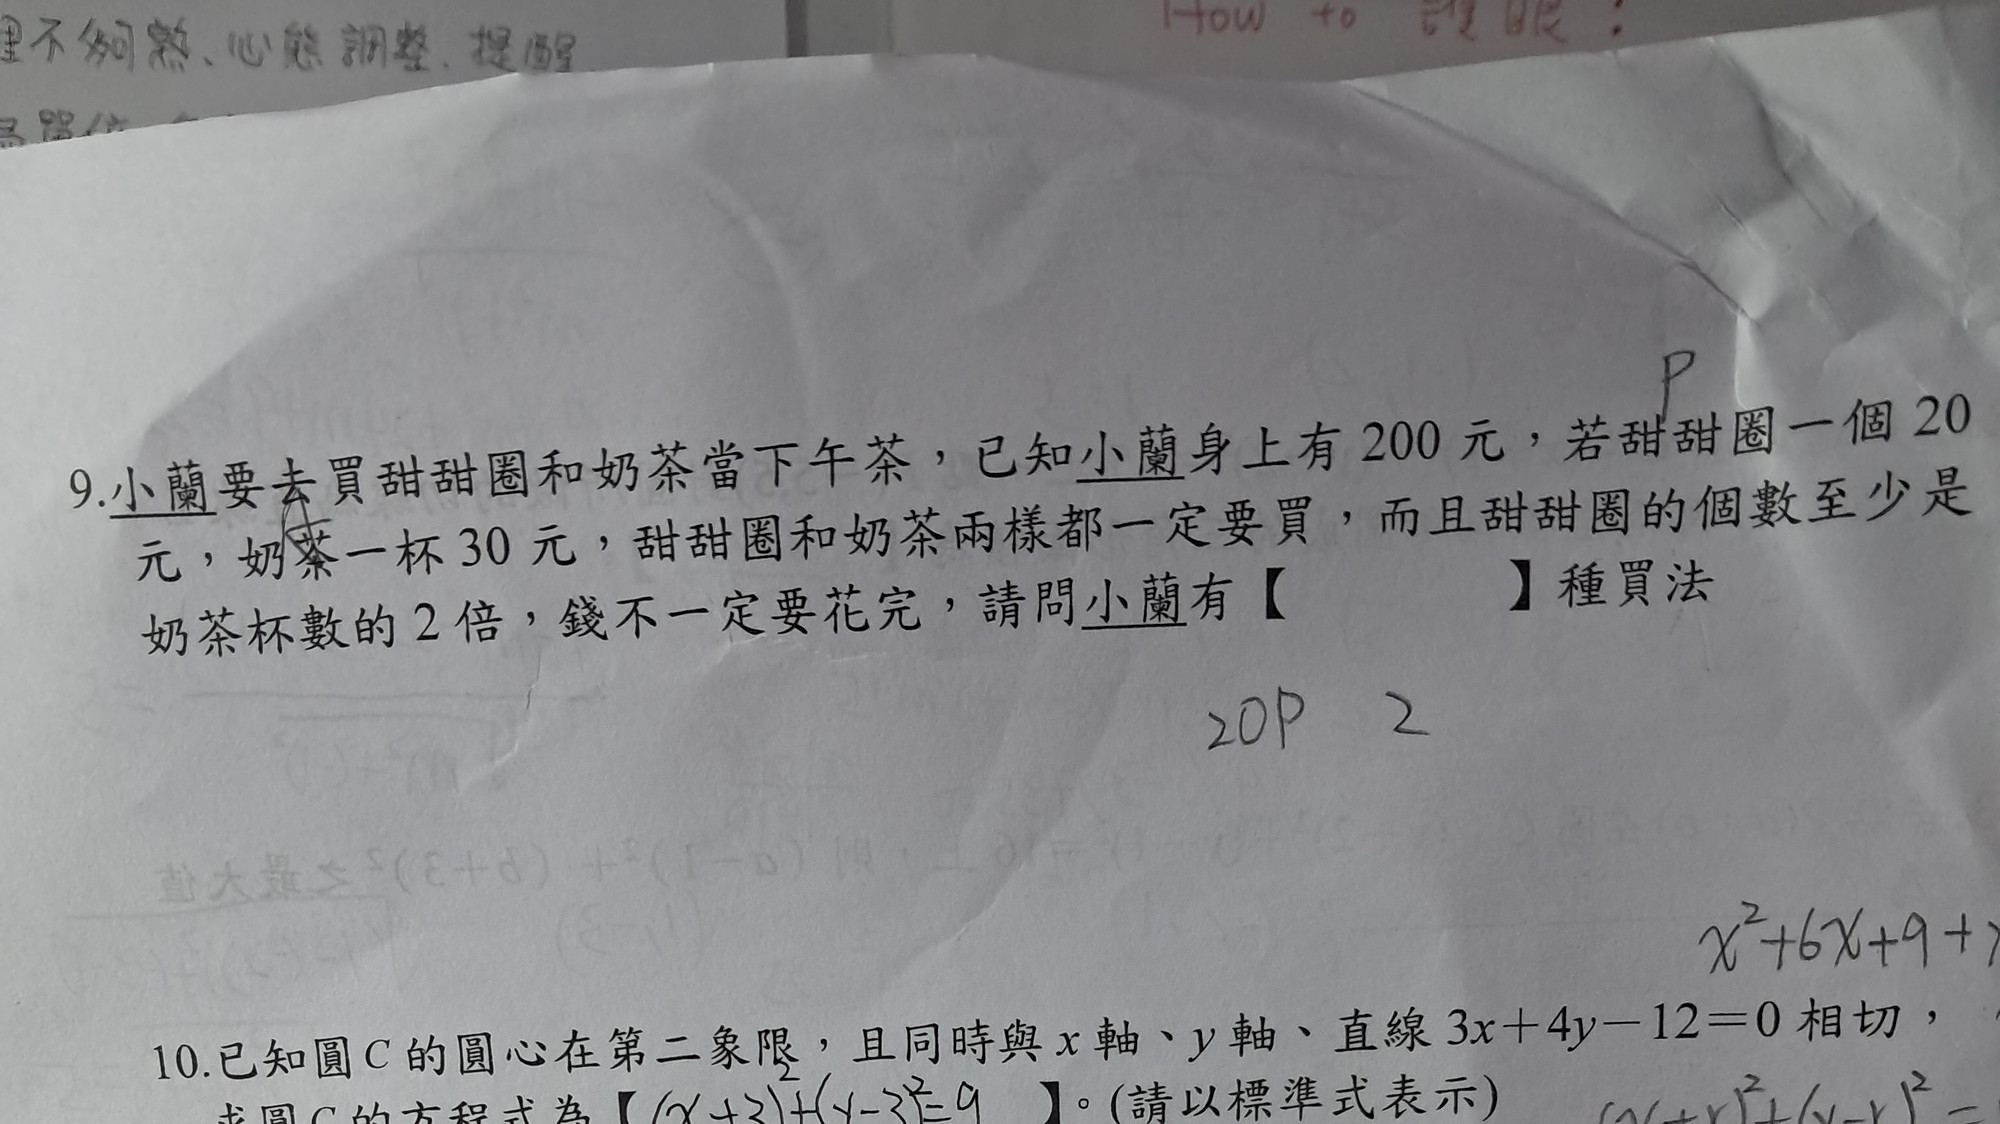 理不夠熟、心態調整、提醒
How to 護眼:
單位
P
9.小蘭要去買甜甜圈和奶茶當下午茶，已知小蘭身上有 200 元，若甜甜圈一個 20
元，奶茶一杯 30 元，甜甜圈和奶茶兩樣都一定要買，而且甜甜圈的個數至少是
奶茶杯數的 2 倍，錢不一定要花完，請問小蘭有【 】種買法
20P 2
x²+6x+9+
10.已知圓 C 的圓心在第二象限，且同時與 x 軸、y 軸、直線 3x＋4y－12＝0 相切，
求圓 C 的方程式為【(x+3)²+(y-3)²=9 】。(請以標準式表示)
(x+r)²+(y-r)²=